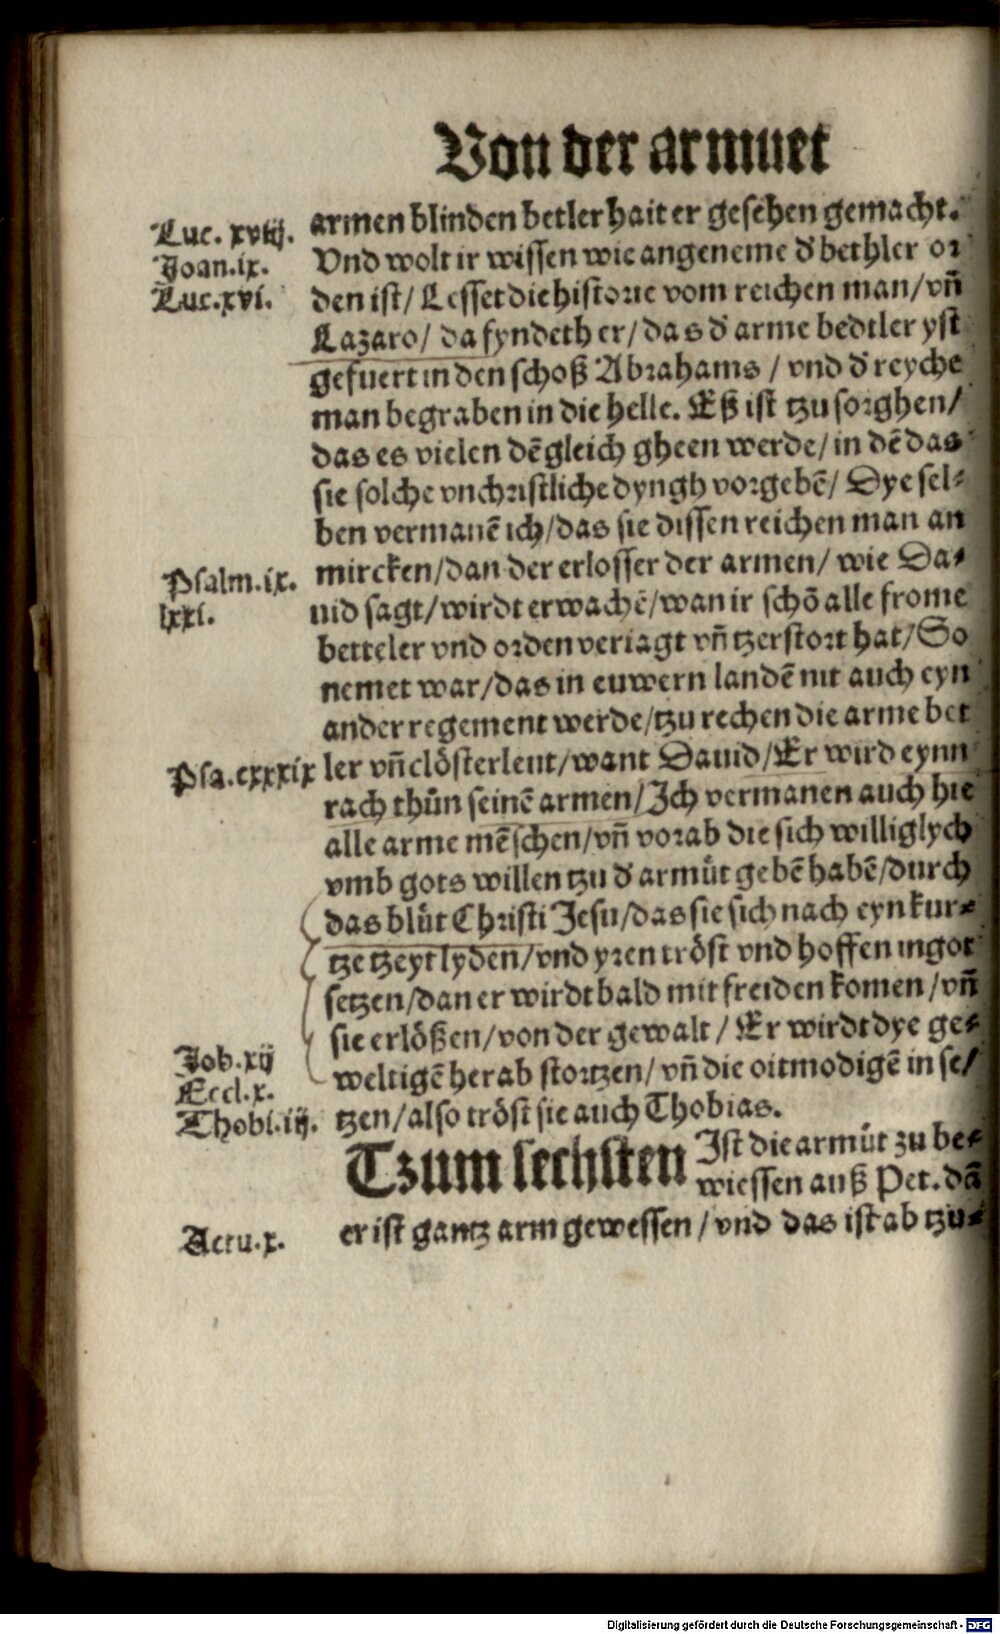 Von der armuet
Luc. xviij.
armen blinden betler hait er gesehen gemacht.
Joan.ix.
Vnd wolt ir wissen wie angeneme d' bethler or
Luc.xvi.
den ist/ Lesset die historie vom reichen man/ vñ
Lazaro/ da fyndeth er/ das d' arme bedtler yst
gefuert in den schoß Abrahams / vnd d' reyche
man begraben in die helle. Eß ist tzu sorghen/
das es vielen dẽ gleich gheen werde/ in dẽ das
sie solche vnchristliche dyngh vorgebẽ/ Dye sel⸗
ben vermanẽ ich/ das sie dissen reichen man an
Psalm.ix.
mircken/ dan der erlosser der armen/ wie Da⸗
lxxi.
uid sagt/ wirdt erwachẽ/ wan ir schõ alle frome
betteler vnd orden veriagt vñ tzerstort hat/ So
nemet war/ das in euwern landẽ nit auch eyn
ander regement werde/ tzu rechen die arme bet
Psa.cxxxix
ler vñ clösterleut/ want Dauid/ Er wird eynn
rach thůn seinẽ armen/ Ich vermanen auch hie
alle arme mẽschen/ vñ vorab die sich williglych
vmb gots willen tzu d' armůt gebẽ habẽ/ durch
das blůt Christi Jesu/ das sie sich nach eyn kur⸗
tze tzeyt lyden/ vnd yren tröst vnd hoffen in got
setzen/ dan er wirdt bald mit freiden komen/ vñ
sie erlößen/ von der gewalt / Er wirdt dye ge⸗
Job.xij
weltigẽ herab stortzen/ vñ die oitmodigẽ in se/
Eccl.x.
Thobi.iij.
tzen/ also tröst sie auch Thobias.
Tzum sechsten Ist die armůt zu be⸗
wiessen auß Pet. dã
Actu.x.
er ist gantz arm gewessen / vnd das ist ab tzu⸗
Digitalisierung gefördert durch die Deutsche Forschungsgemeinschaft - DFG